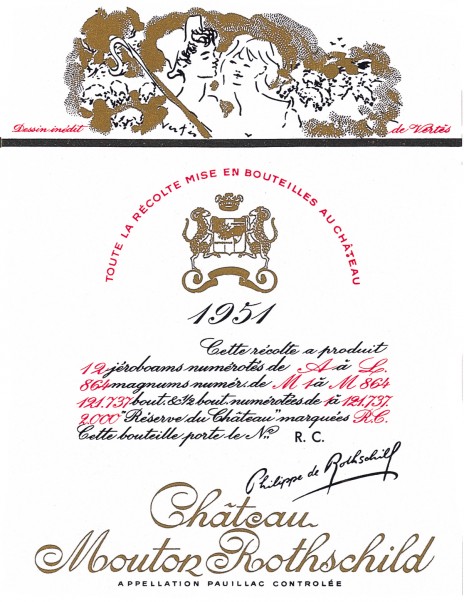 Dessin inédit
de Vertès
TOUTE LA RÉCOLTE MISE EN BOUTEILLES AU CHÂTEAU
1951
Cette récolte a produit
12 jéroboams numérotés de A à L.
864 magnums numér. de M 1 à M 864
121.737 bout. & 1/2 bout. numérotées de 1 à 121.737
2.000 "Réserve du Château" marquées R.C.
Cette bouteille porte le No. R. C.
Philippe de Rothschild
Château
Mouton Rothschild
APPELLATION PAUILLAC CONTROLÉE